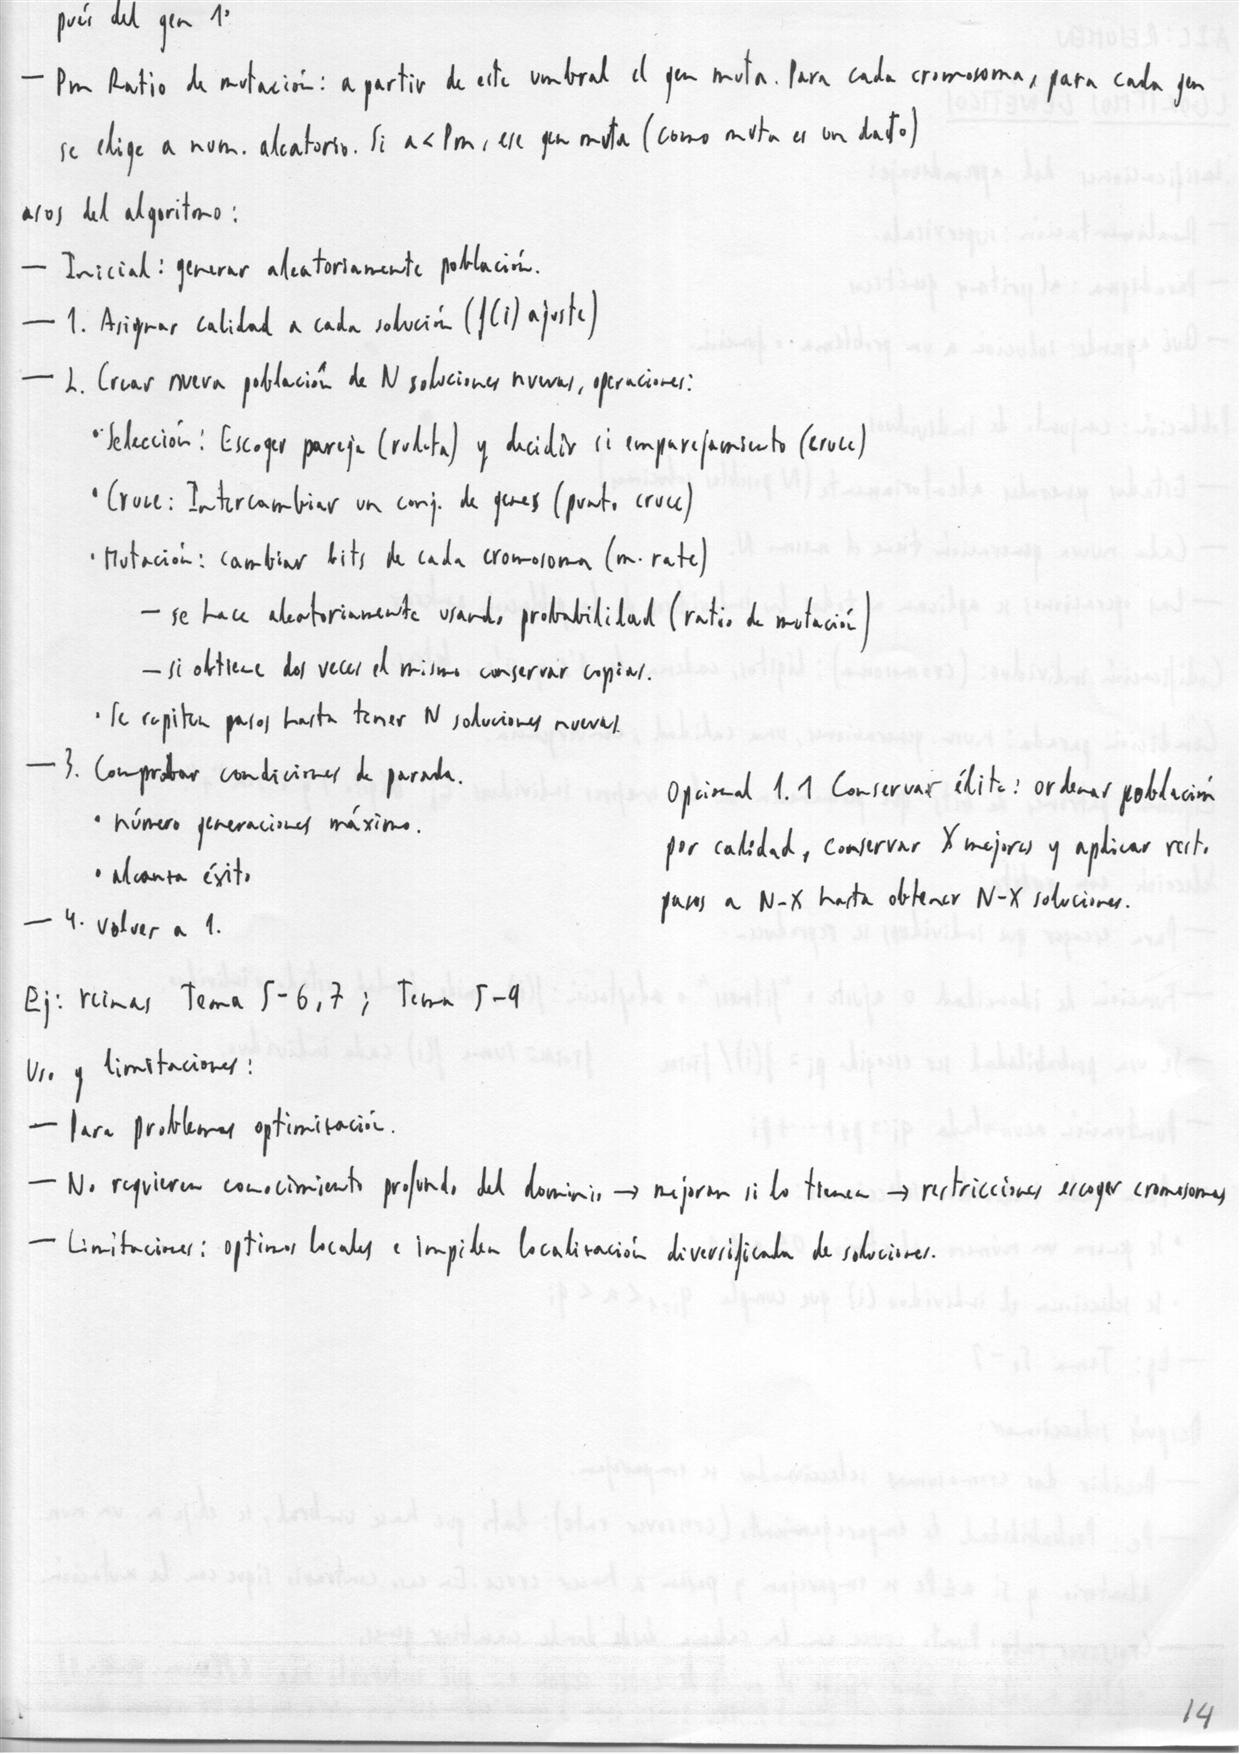 pués del gen 1º
— Pm Ratio de mutación: a partir de este umbral el gen muta. Para cada cromosoma, para cada gen
se elige a num. aleatorio. Si a < Pm, ese gen muta (como muta es un dato)
asos del algoritmo:
— Inicial: generar aleatoriamente población.
— 1. Asignar calidad a cada solución (f(i) ajuste)
— 2. Crear nueva población de N soluciones nuevas, operaciones:
• Selección: Escoger pareja (ruleta) y decidir si emparejamiento (cruce)
• Cruce: Intercambiar un conj. de genes (punto cruce)
• Mutación: cambiar bits de cada cromosoma (m. rate)
— se hace aleatoriamente usando probabilidad (ratio de mutación)
— si obtiene dos veces el mismo conservar copias.
• Se repiten pasos hasta tener N soluciones nuevas.
— 3. Comprobar condiciones de parada.
• número generaciones máximo.
• alcanza éxito
— 4. Volver a 1.
Opcional 1.1 Conservar élite: ordenar población
por calidad, conservar X mejores y aplicar resto
pasos a N-X hasta obtener N-X soluciones.
Ej: reinas Tema 5-6,7 ; Tema 5-9
Uso y limitaciones:
— Para problemas optimización.
— No requieren conocimiento profundo del dominio → mejoran si lo tienen → restricciones escoger cromosomas
— Limitaciones: optimos locales e impiden localización diversificada de soluciones.
14